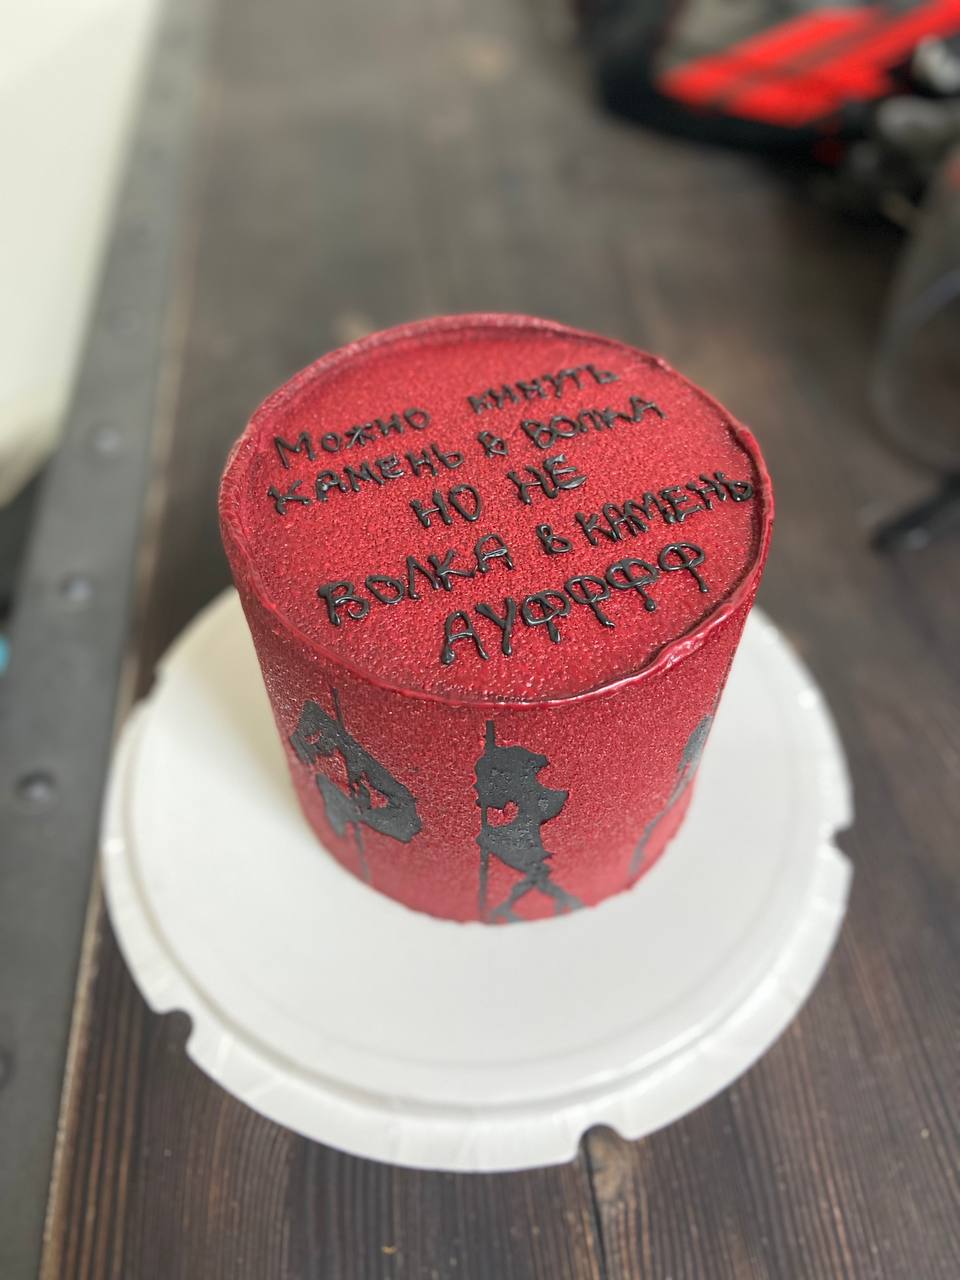 Можно кинуть
КАМЕНЬ В ВОЛКА
НО НЕ
ВОЛКА В КАМЕНЬ
АУФФФФ